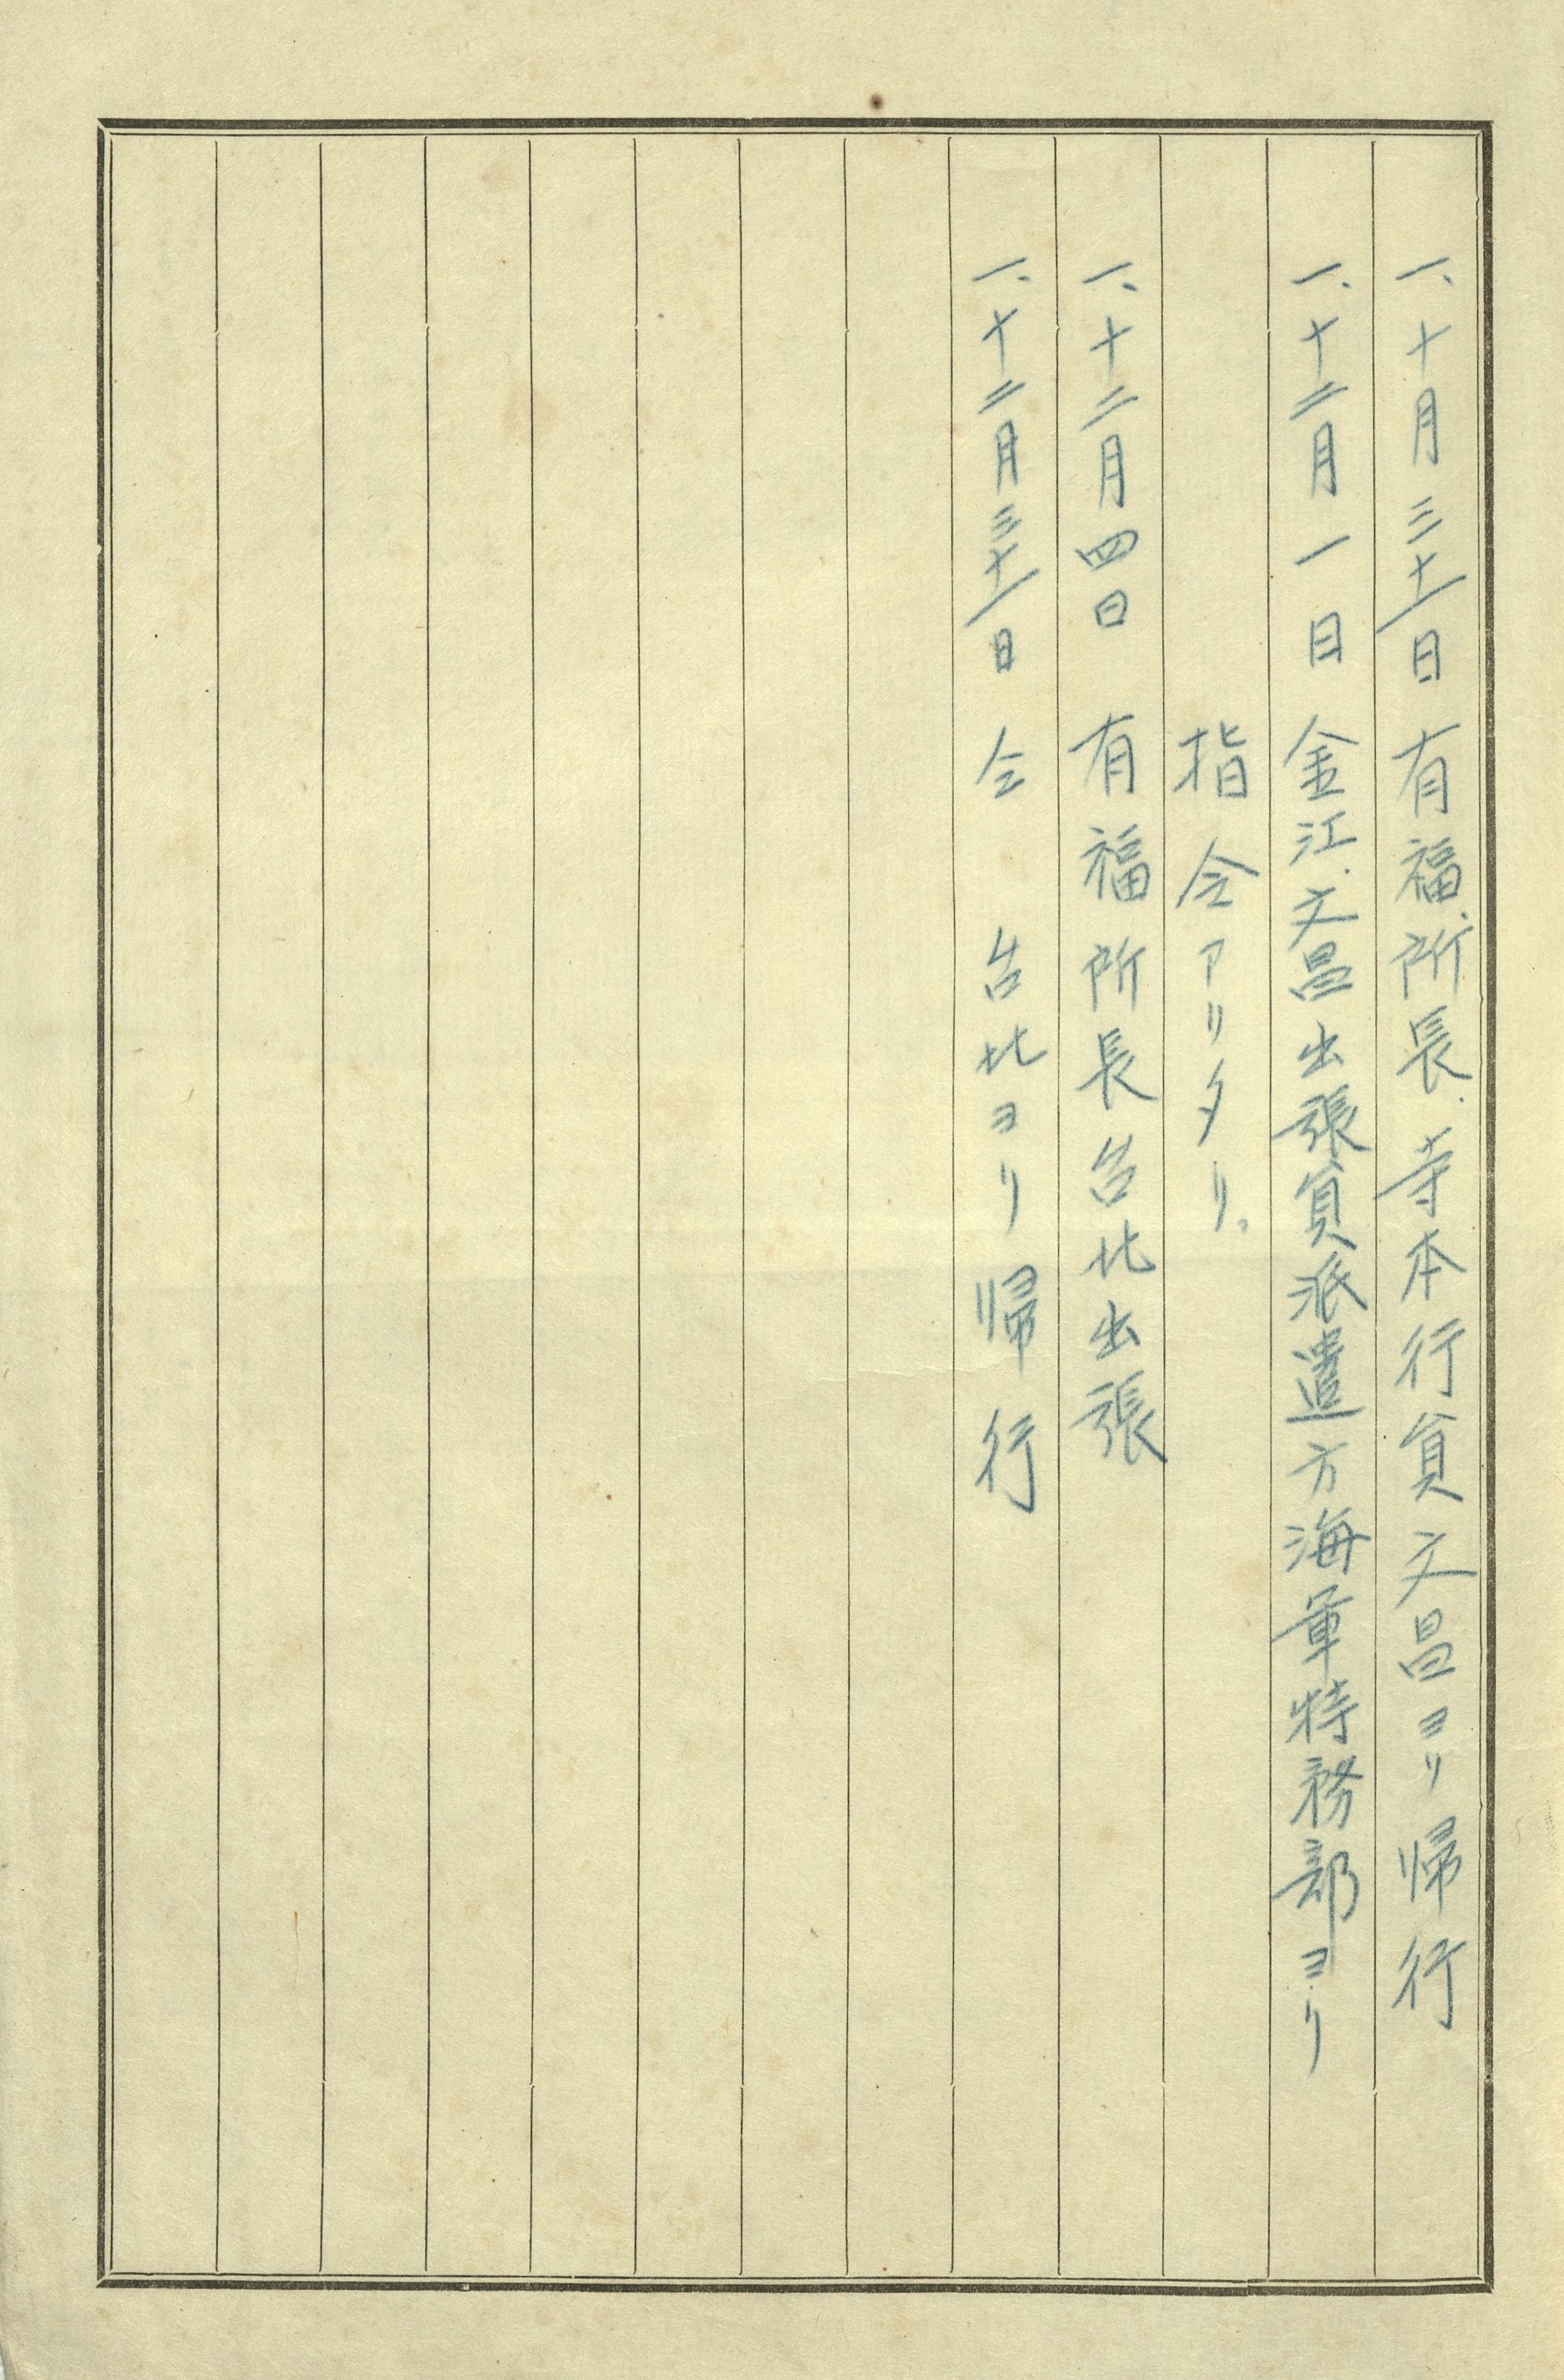 一、十月三十一日有福、所長、寺本行員文昌ヨリ帰行
一、十二月一日金江、文昌出張員派遣方海軍特務部ヨリ
指令アリタリ。
一、十二月四日有福所長台北出張
一、十二月三十一日仝台北ヨリ帰行